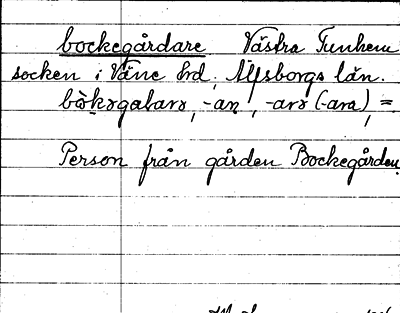 bockegårdare Västra Tunhem
socken i Väne hd, Älfsborgs län.
bòkəgalarə, -an, -arə (-ara), =
Person från gården Bockegården.